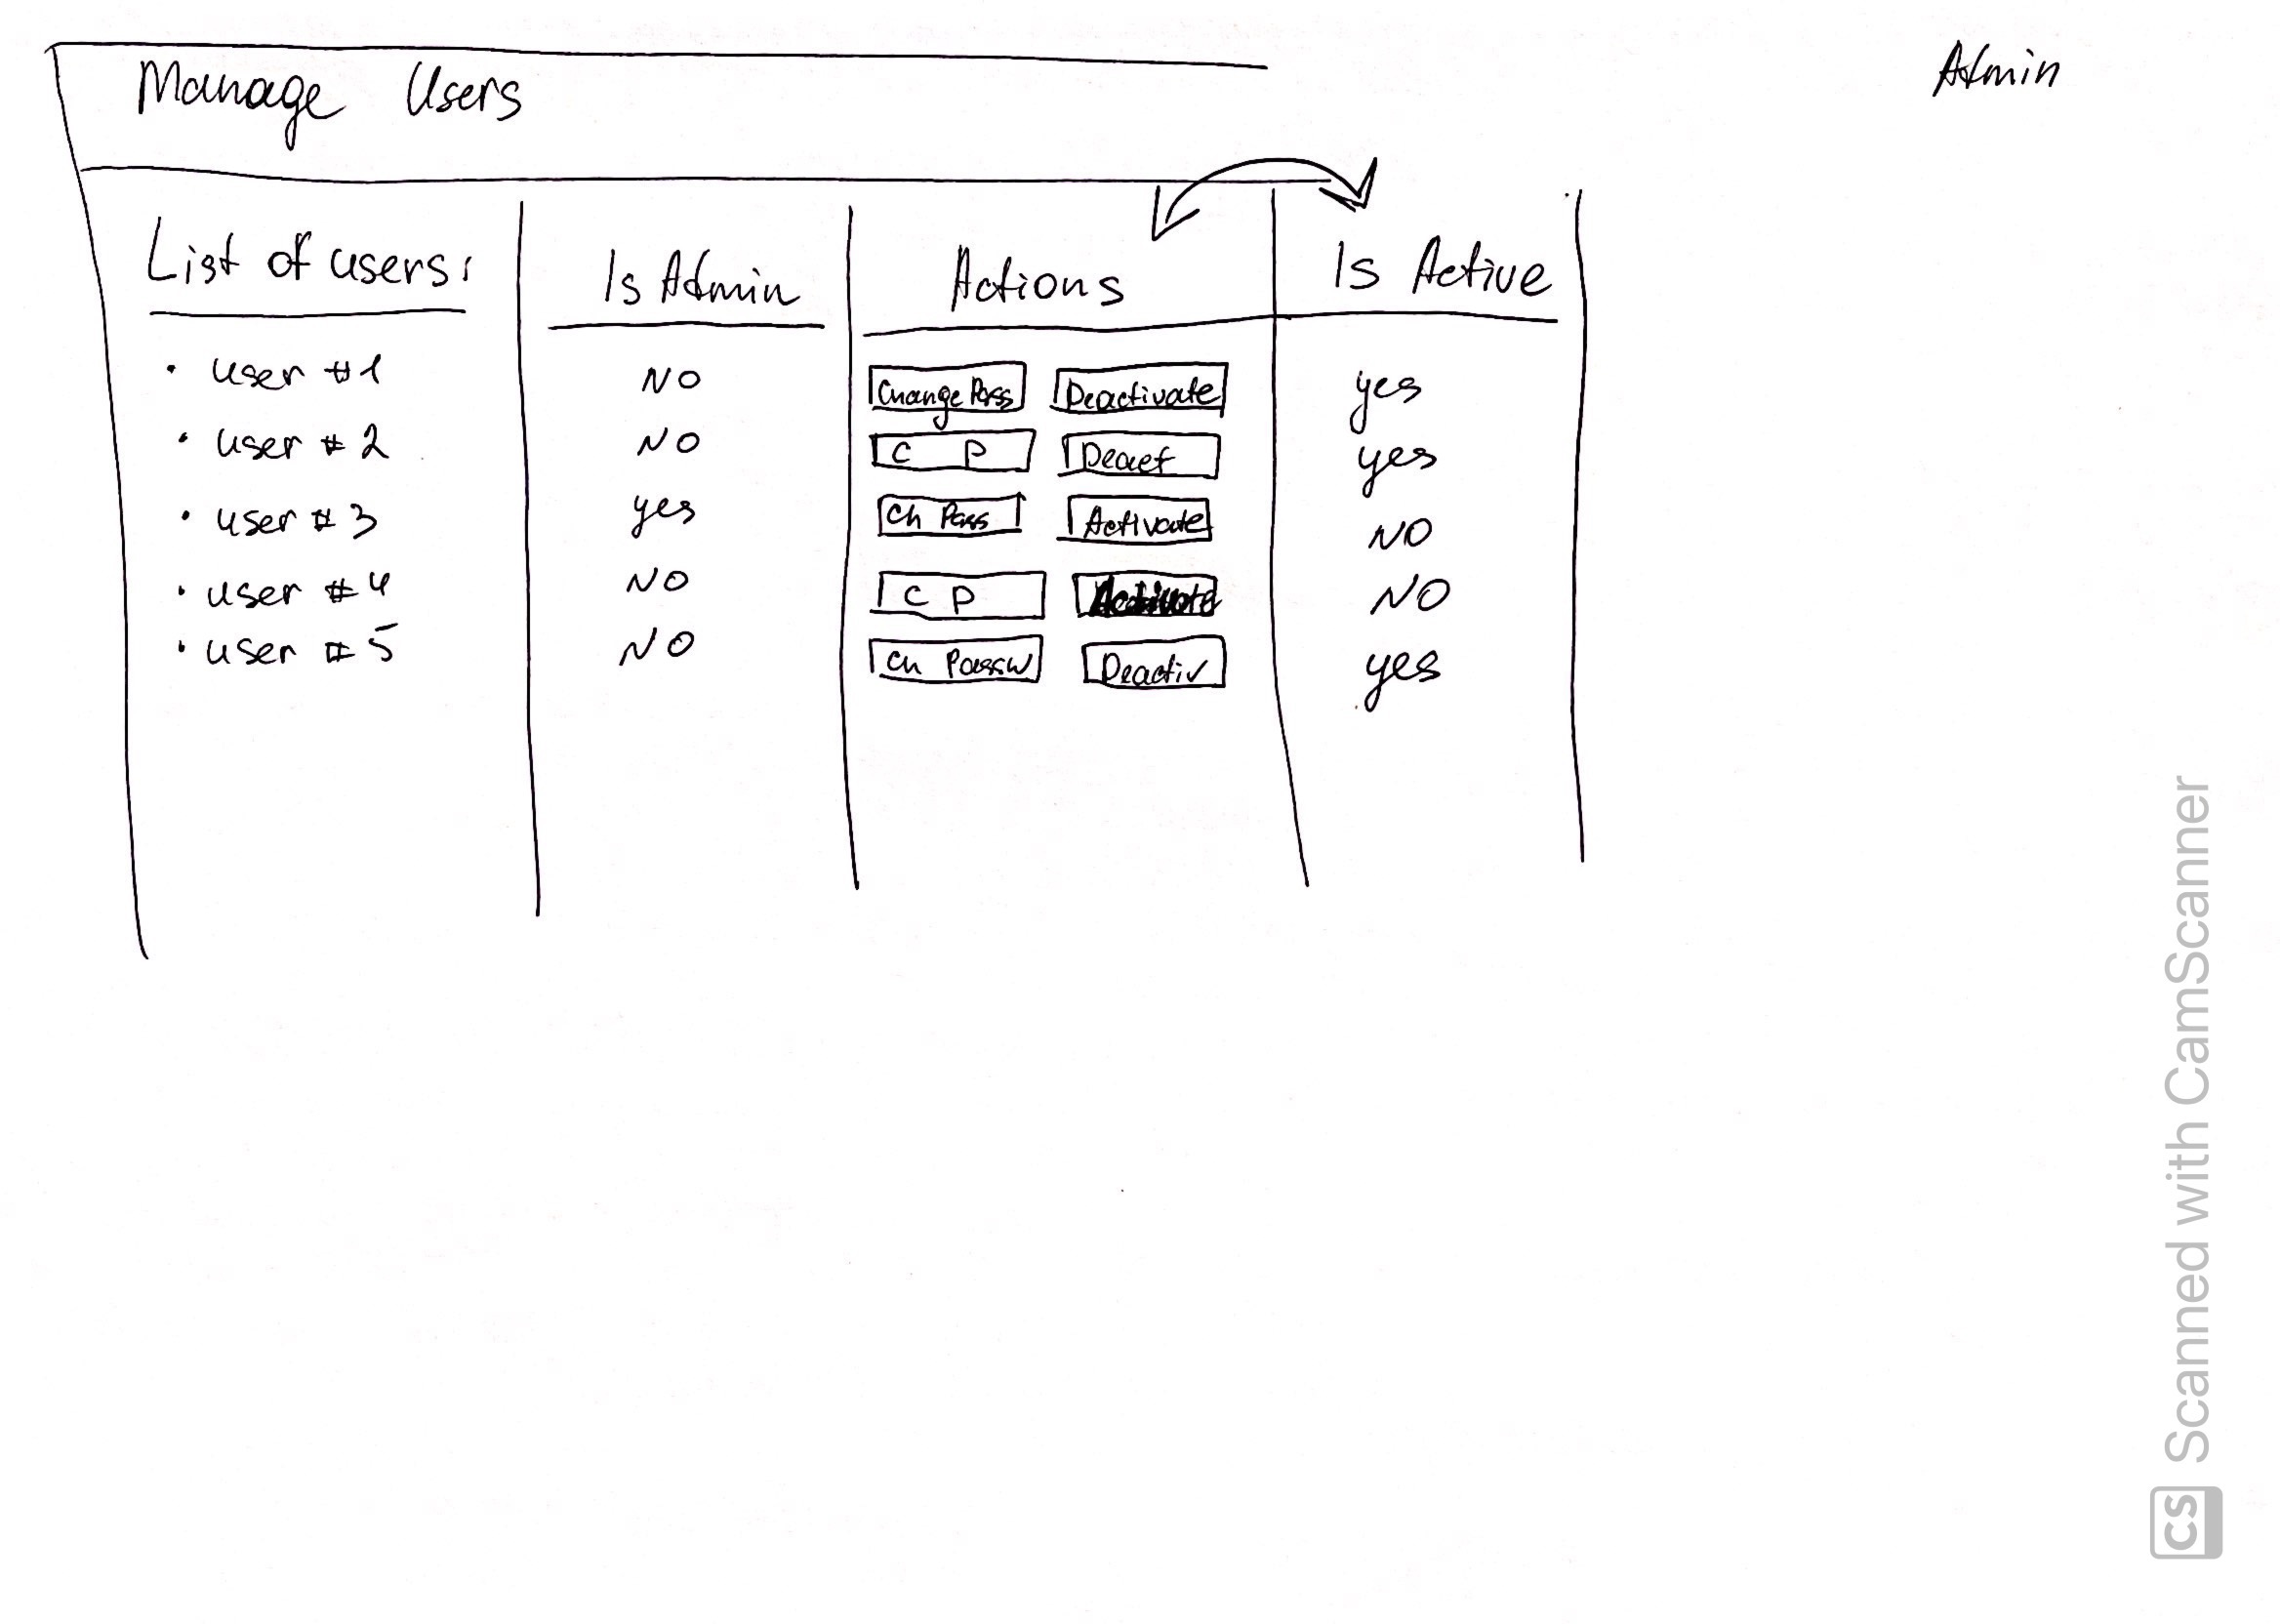 Manage Users
Admin
List of users:
Is Admin
Actions
Is Active
• user #1 NO Change Pass Deactivate yes
• user #2 NO C P Deact yes
• user #3 yes Ch Pass Activate NO
• user #4 NO C P Activate NO
• user #5 NO Ch Passw Deactiv yes
CS Scanned with CamScanner